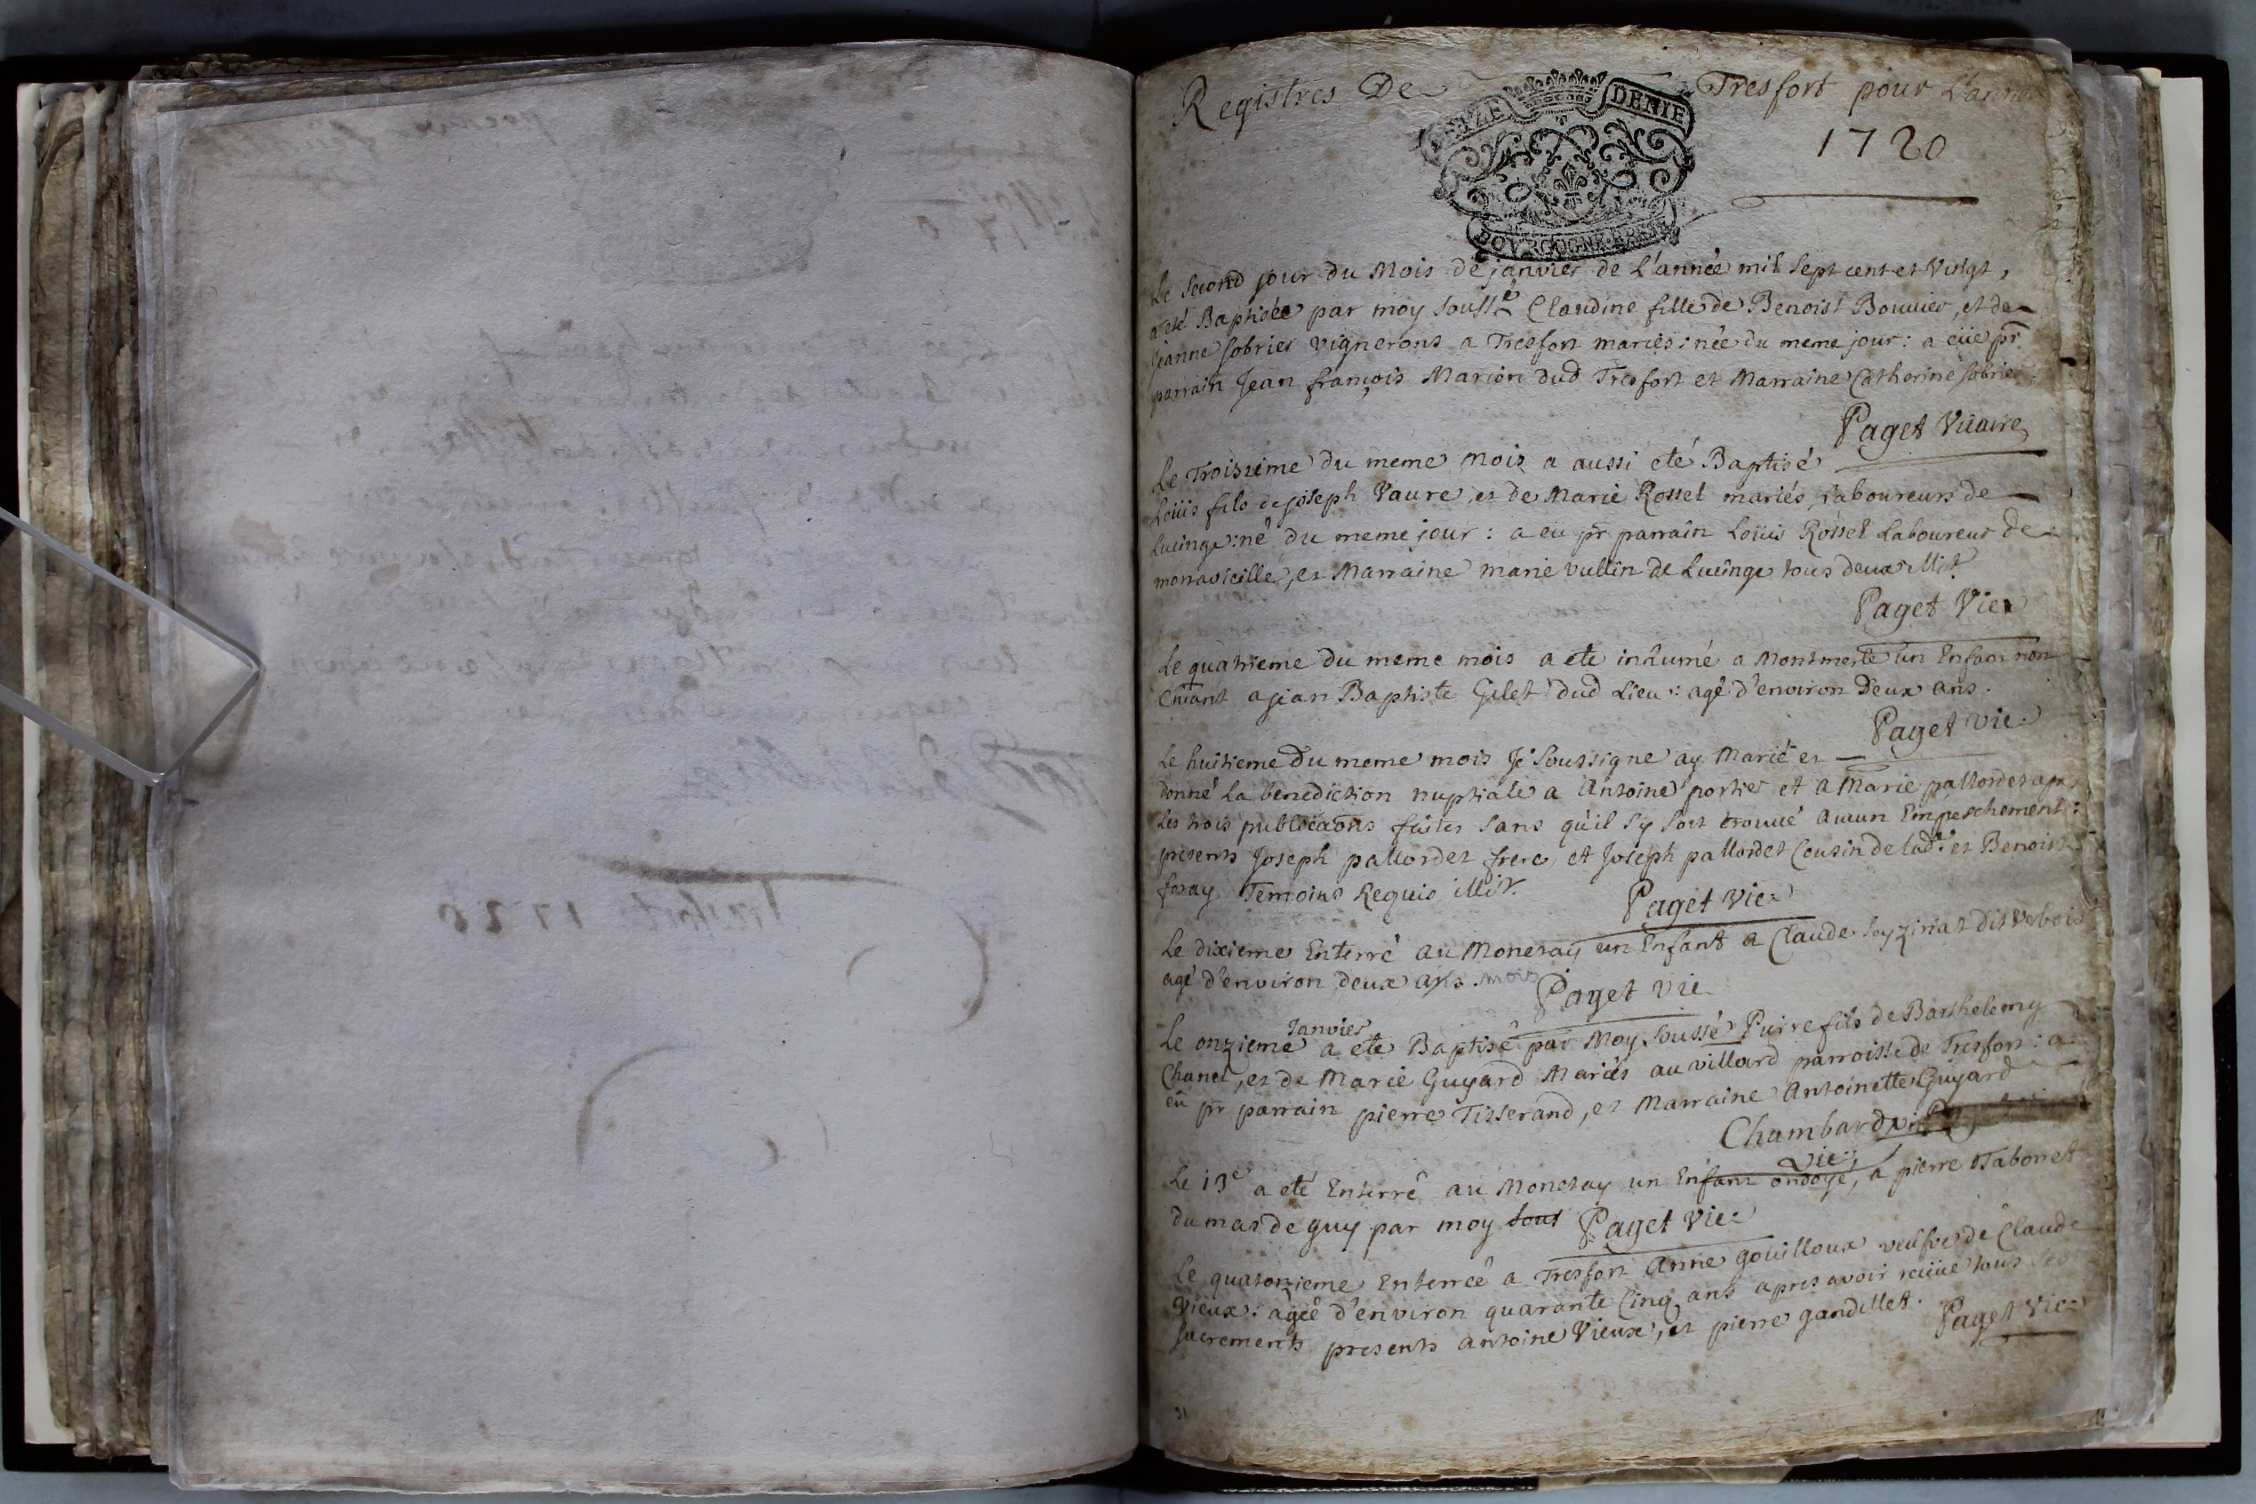 Tresfort 1720
Registres De Tresfort pour L'année
1720
SEIZE DENIE
BOVRGOGNE BRESSE
Le second jour du Mois de janvier de L'année mil sept cent et vingt,
a eté Baptisée par moy soussé Claudine fille de Benoist Bouuier, et de
Jeanne sobrier vignerons a Tresfort mariés: née du meme jour: a eüe pr
parrain Jean françois Marion dud Tresfort et Marraine Catherine sobrier
Paget Vicaire
Le Troisieme du meme Mois a aussi eté Baptisé
Loüis fils de joseph Vaure, et de Marie Rosset mariés, Laboureurs de
Lucinge: né du meme jour: a eu pr parrain Loüis Rosset Laboureur de
monavieille, et Marraine marie vullin de Lucinge tous deux illit
Paget Vic.
Le quatrieme du meme mois a ete inhumé a Montmerle un Enfant
a jean Baptiste Gelet dud Lieu: agé d'environ deux ans.
Paget vic.
Le huitieme du meme mois Je soussigne ay Marié et
donné La benediction nuptiale a Antoine portier et a Marie pallordet apr
Les trois publicaons faites sans qu'il s'y soit trouué aucun Empeschement:
presents Joseph pallordet frere, et Joseph pallordet Cousin de lade et Benoist
foray Temoins Requis illit.
Paget Vic.
Le dixieme Enterré au Monetay un Enfant a Claude seyziriat dit Verbois
agé d'environ deux ans. mois
Paget vic
Le onzieme Janvier a ete Baptisé par Moy soussé Pierre fils de Barthelemy
Chanel, et de Marie Guyard Mariés au villard parroisse de Tresfort: a
eu pr parrain pierre Tisserand, et Marraine Antoinette Guyard
Chambard
vic.
Le 13e a eté Enterré au Monetay un Enfant ondoyé, a pierre Tabouret
du mas de guy par moy sous Paget Vic.
Le quatorzieme Enterreé a Tresfort Anne gouilloux veufve de Claude
Vieux: ageé d'environ quarante Cinq ans apres avoir reçüe tous les
sacrements presents antoine Vieux, et pierre gandillet.
Paget Vic.